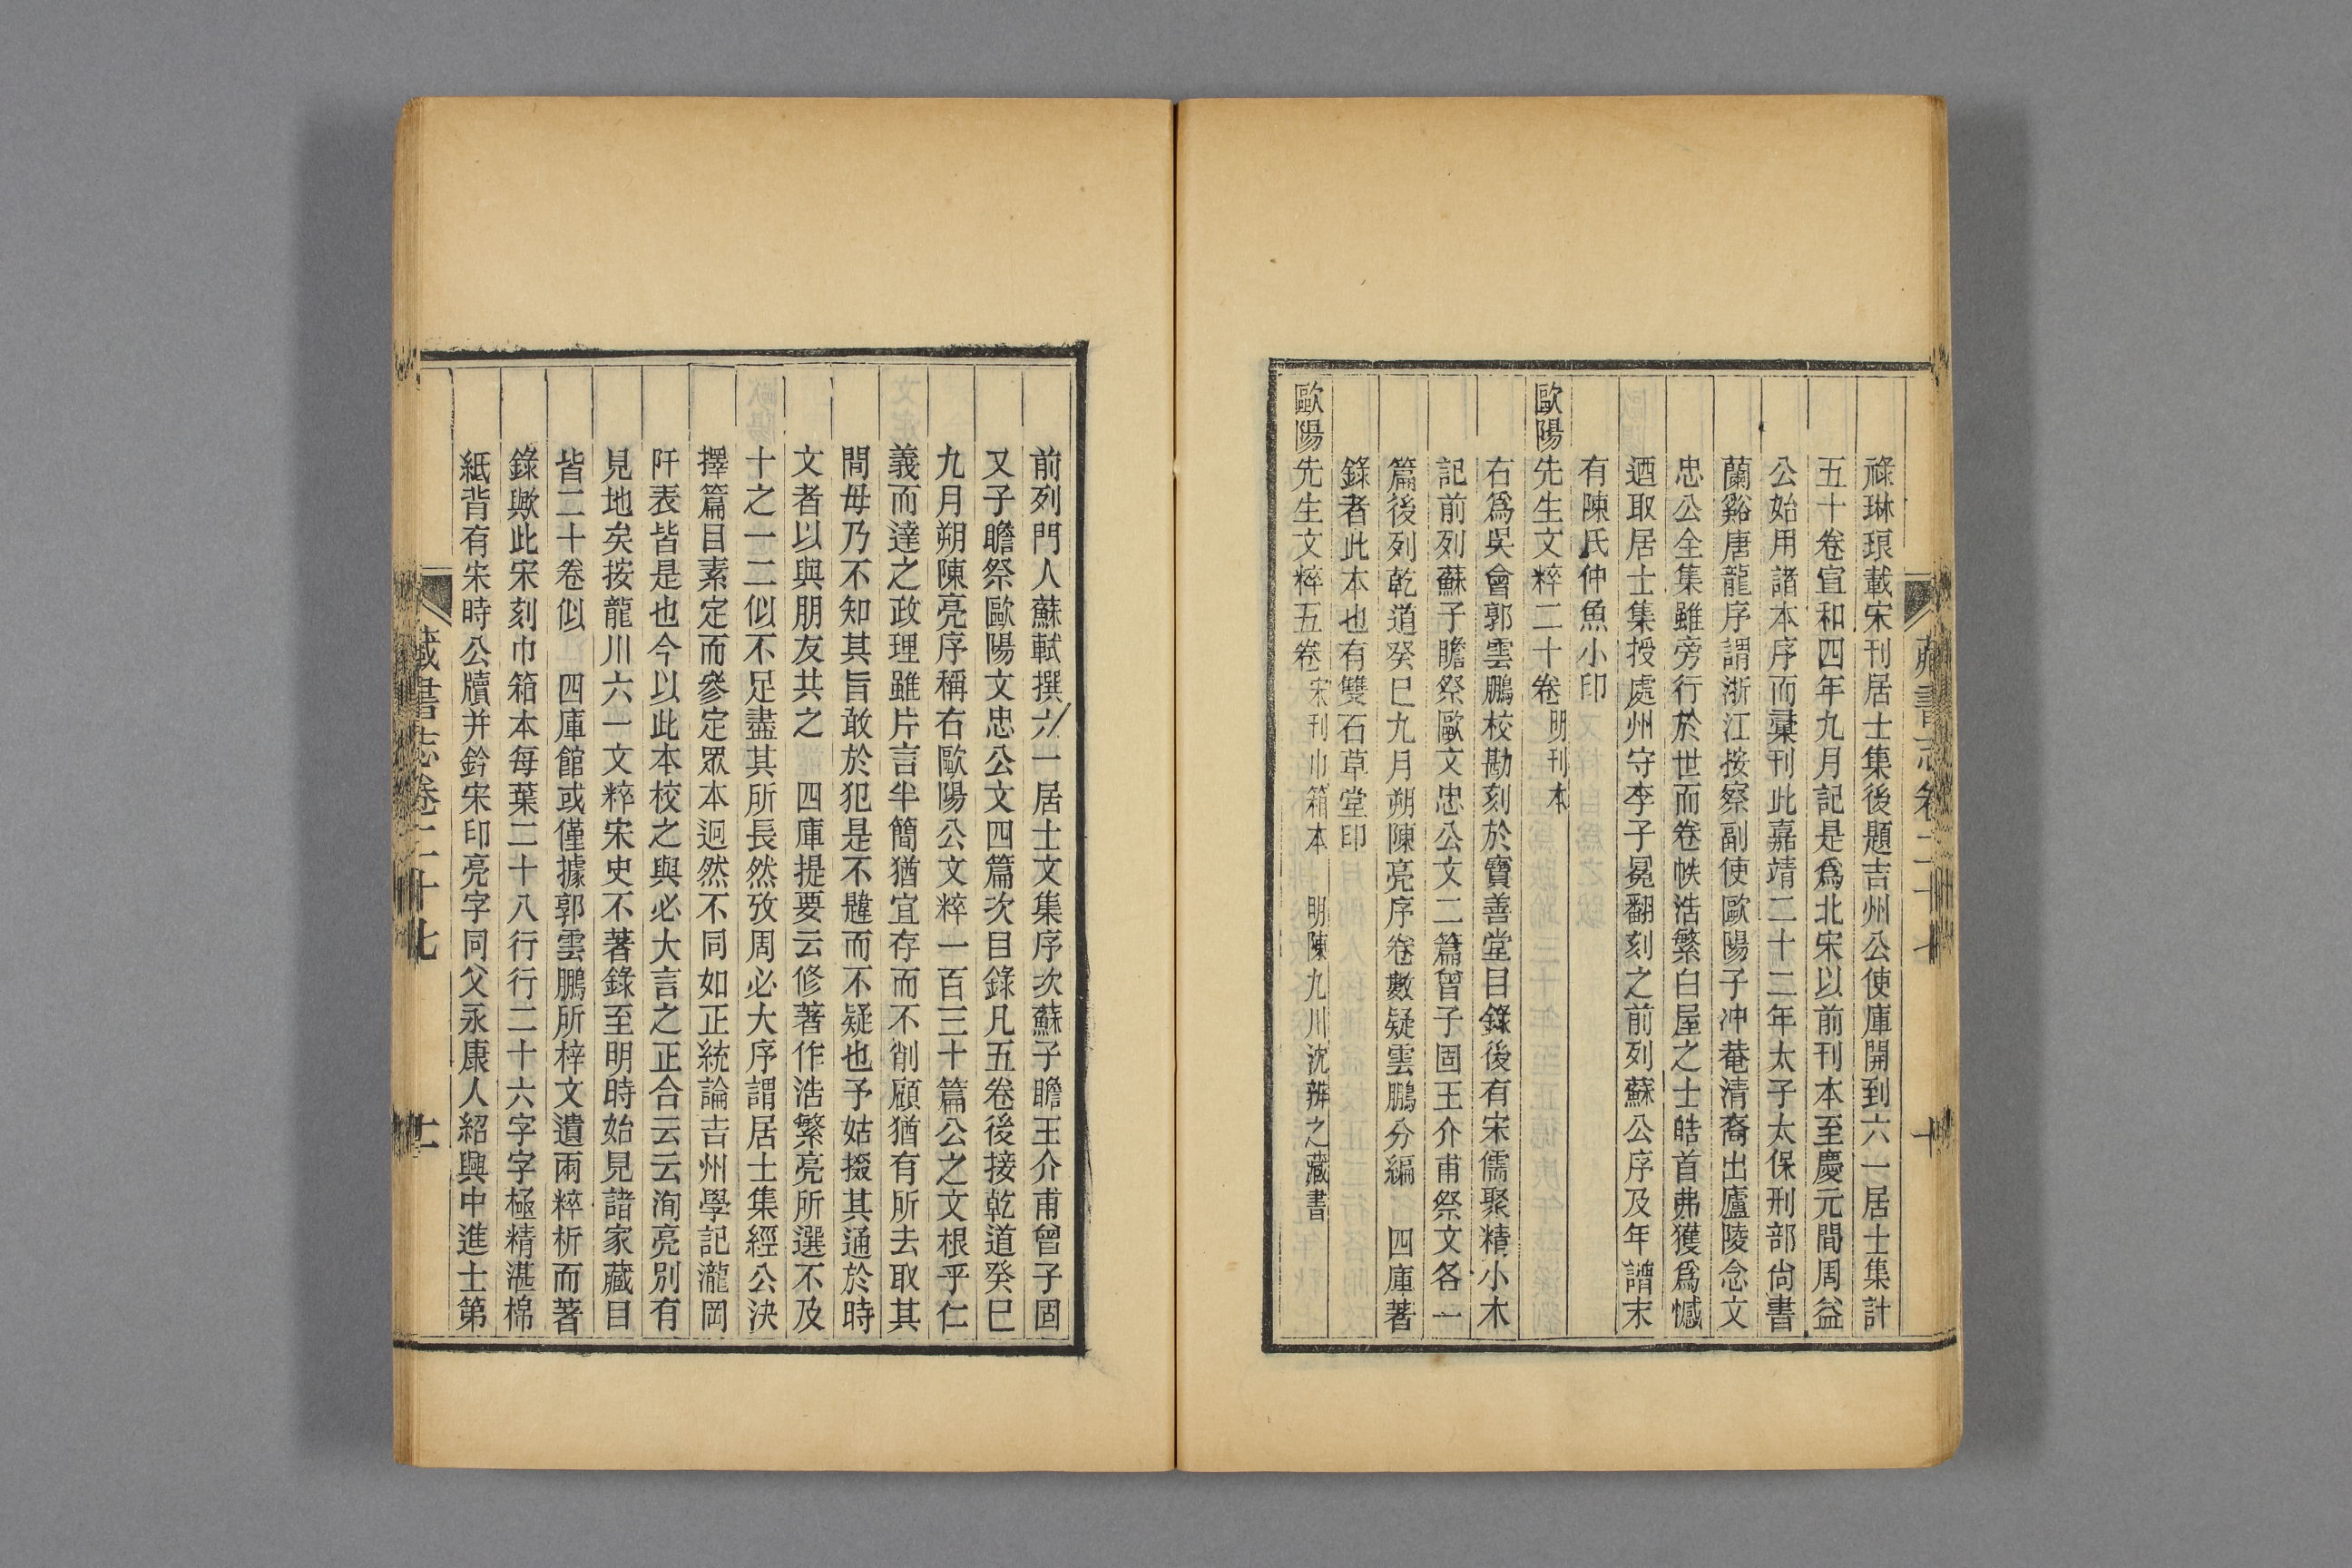 祿琳琅載宋刊居士集後題吉州公使庫開到六一居士集計
五十卷宣和四年九月記是爲北宋以前刊本至慶元間周益
公始用諸本序而彙刊此嘉靖二十二年太子太保刑部尚書
蘭谿唐龍序謂浙江按察副使歐陽子冲菴清裔出廬陵念文
忠公全集雖旁行於世而卷帙浩繁白屋之士皓首弗獲爲憾
迺取居士集授處州守李子冕翻刻之前列蘇公序及年譜末
有陳氏仲魚小印
歐陽先生文粹二十卷 明刊本
右爲吳會郭雲鵬校勘刻於寶善堂目錄後有宋儒聚精小木
記前列蘇子瞻祭歐文忠公文二篇曾子固王介甫祭文各一
篇後列乾道癸巳九月朔陳亮序卷數疑雲鵬分編 四庫著
錄者此本也有雙石草堂印
歐陽先生文粹五卷 宋刊巾箱本 明陳九川沈辨之藏書
藏書志卷二十七 十
前列門人蘇軾撰六一居士文集序次蘇子瞻王介甫曾子固
又子瞻祭歐陽文忠公文四篇次目錄凡五卷後接乾道癸巳
九月朔陳亮序稱右歐陽公文粹一百三十篇公之文根乎仁
義而達之政理雖片言半簡猶宜存而不削顧猶有所去取其
間毋乃不知其旨敢於犯是不韙而不疑也予姑掇其通於時
文者以與朋友共之 四庫提要云修著作浩繁亮所選不及
十之一二似不足盡其所長然攷周必大序謂居士集經公決
擇篇目素定而參定眾本迥然不同如正統論吉州學記瀧岡
阡表皆是也今以此本校之與必大言之正合云云洵亮別有
見地矣按龍川六一文粹宋史不著錄至明時始見諸家藏目
皆二十卷似 四庫館或僅據郭雲鵬所梓文遺兩粹析而著
錄歟此宋刻巾箱本每葉二十八行行二十六字字極精湛棉
紙背有宋時公牘并鈐宋印亮字同父永康人紹興中進士第
藏書志卷二十七 十一